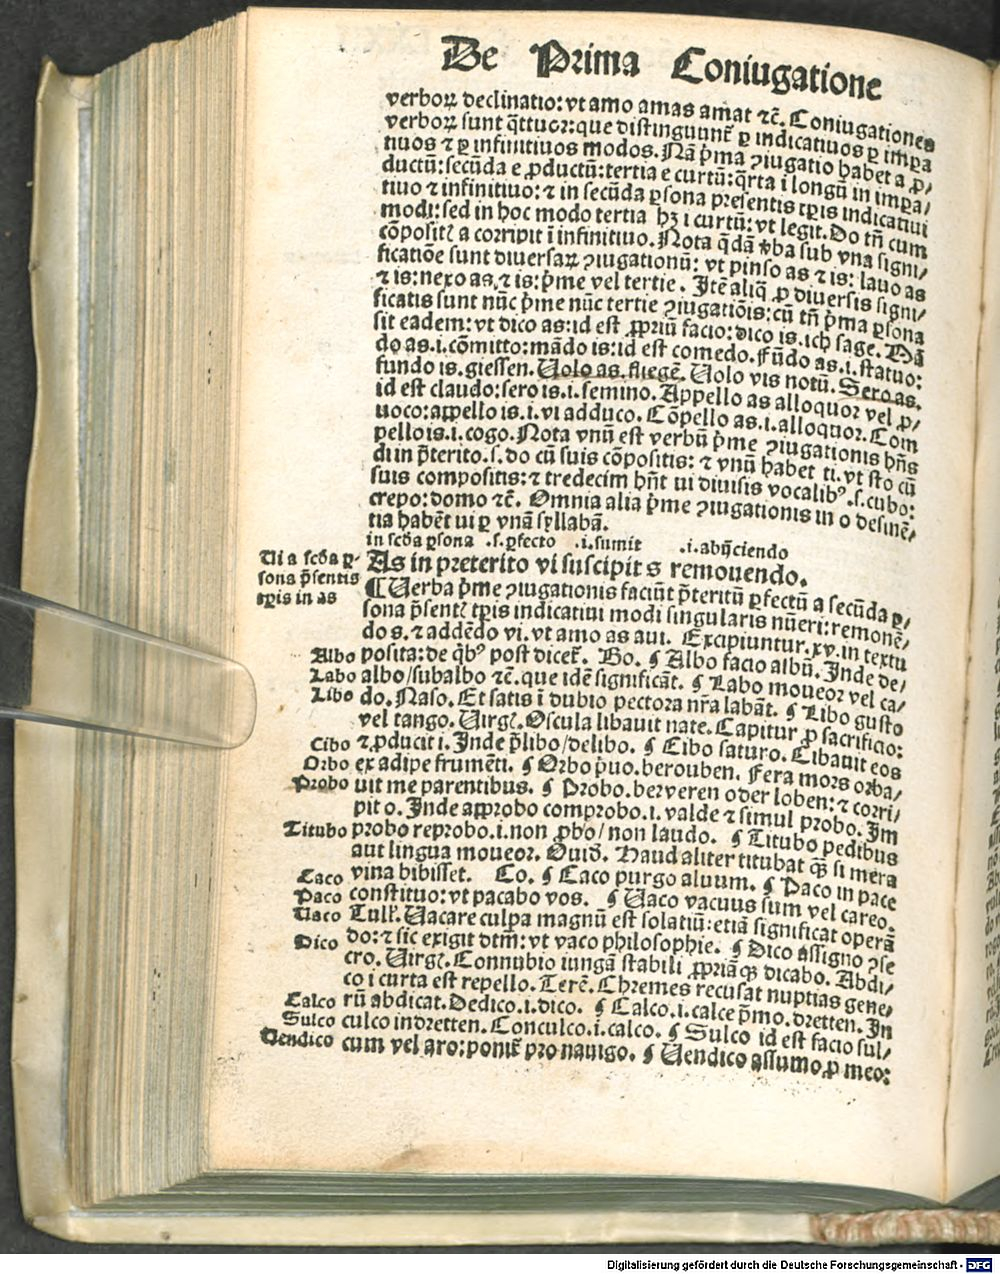 De Prima Coniugatione
verboꝝ declinatio: vt amo amas amat ⁊c̄. Coniugationes
verboꝝ sunt q̄ttuor: que distinguunt̄ ꝑ indicatiuos ꝑ impa
tiuos ⁊ ꝑ infinitiuos modos. Nā p̄ma ꝯiugatio habet a ꝓ/
ductū: secūda e ꝓductū: tertia e curtū: q̄rta i longū in impa/
tiuo ⁊ infinitiuo: ⁊ in secūda ꝑsona presentis tꝑis indicatiui
modi: sed in hoc modo tertia hꝫ i curtū: vt legit. Do tñ cum
cōposit̄ a corripit ī infinitiuo. Nota q̄dā v̄ba sub vna signi/
ficatiōe sunt diuersaꝝ ꝯiugationū: vt pinso as ⁊ is: lauo as
⁊ is: nexo as ⁊ is: p̄me vel tertie. Itē aliq̄ ꝓ diuersis signi/
ficatis sunt nūc p̄me nūc tertie ꝯiugatiōis: cū tñ p̄ma ꝑsona
sit eadem: vt dico as: id est ꝓpriū facio: dico is. ich sage. Mā
do as .i. cōmitto: mādo is: id est comedo. Fūdo as .i. statuo:
fundo is. giessen. Uolo as. fliegē. Uolo vis notū. Sero as.
id est claudo: sero is .i. semino. Appello as alloquor vel ꝓ/
uoco: appello is .i. vi adduco. Cōpello as .i. alloquor. Com
pello is .i. cogo. Nota vnū est verbū p̄me ꝯiugationis hñs
di in p̄terito .s. do cū suis cōpositis: ⁊ vnū habet ti. vt sto cū
suis compositis: ⁊ tredecim hñt ui diuisis vocalibꝰ .s. cubo:
crepo: domo ⁊c̄. Omnia alia p̄me ꝯiugationis in o desinē/
tia habēt ui ꝑ vnā syllabā.
in scd̄a ꝑsona .s. ꝑfecto .i. sumit .i. abijciendo
Ui a scd̄a ꝑ-
sona p̄sentis
tꝑis in as
As in preterito vi suscipit s remouendo.
¶ Uerba p̄me ꝯiugationis faciūt p̄teritū ꝑfectū a secūda ꝑ/
sona p̄sent̄ tꝑis indicatiui modi singularis nūeri: remouē/
do s. ⁊ addēdo vi. vt amo as aui. Excipiuntur .xv. in textu
Albo posita: de q̄bꝰ post dicet̄. Bo. ¶ Albo facio albū. Inde de/
Labo albo/subalbo ⁊c̄. que idē significāt. ¶ Labo moueor vel ca/
Libo do. Naso. Et satis ī dubio pectora nr̄a labāt. ¶ Libo gusto
vel tango. Uirgꝉ. Oscula libauit nate. Capitur ꝓ sacrificio:
Cibo ⁊ ꝓducit i. Inde p̄libo/delibo. ¶ Cibo saturo. Cibauit eos
Orbo ex adipe frumēti. ¶ Orbo p̄uo. berouben. Fera mors orba/
Probo uit me parentibus. ¶ Probo. berveren oder loben: ⁊ corri/
pit o. Inde approbo comprobo .i. valde ⁊ simul probo. Im
Titubo probo reprobo .i. non ꝓbo/ non laudo. ¶ Titubo pedibus
aut lingua moueor. Ouid̄. Haud aliter titubat q̄ꝫ si mera
Caco vina bibisset. Co. ¶ Caco purgo aluum. ¶ Paco in pace
Paco constituo: vt pacabo vos. ¶ Uaco vacuus sum vel careo.
Uaco Tull̄. Uacare culpa magnū est solatiū: etiā significat operā
Dico do: ⁊ sic exigit dtm̄: vt vaco philosophie. ¶ Dico assigno ꝯse
cro. Uirgꝉ. Connubio iungā stabili ꝓpriāqꝫ dicabo. Abdi/
co i curta est repello. Terē. Chremes recusat nuptias gene/
Calco rū abdicat. Dedico .i. dico. ¶ Calco .i. calce p̄mo. dretten. In
Sulco culco indretten. Conculco .i. calco. ¶ Sulco id est facio sul/
Uendico cum vel aro: ponit̄ pro nauigo. ¶ Uendico assumo ꝓ meo:
Digitalisierung gefördert durch die Deutsche Forschungsgemeinschaft - DFG